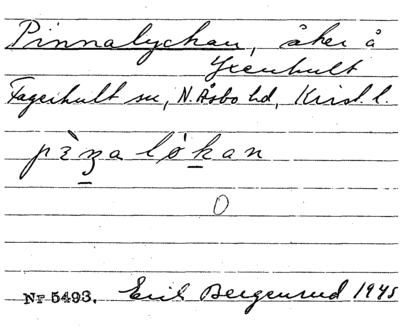 Pinnalyckan, åker å
Yxenhult
Fagerhult sn, N. Åsbo hd, Krist. l.
pìnalókan
O
Nr 5493. Erik Bergenrud 1945